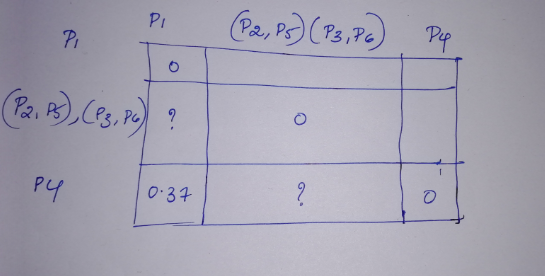 P1 (P2, P5) (P3, P6) P4
P1 0
(P2, P5), (P3, P6) ? 0
P4 0.37 ? 0